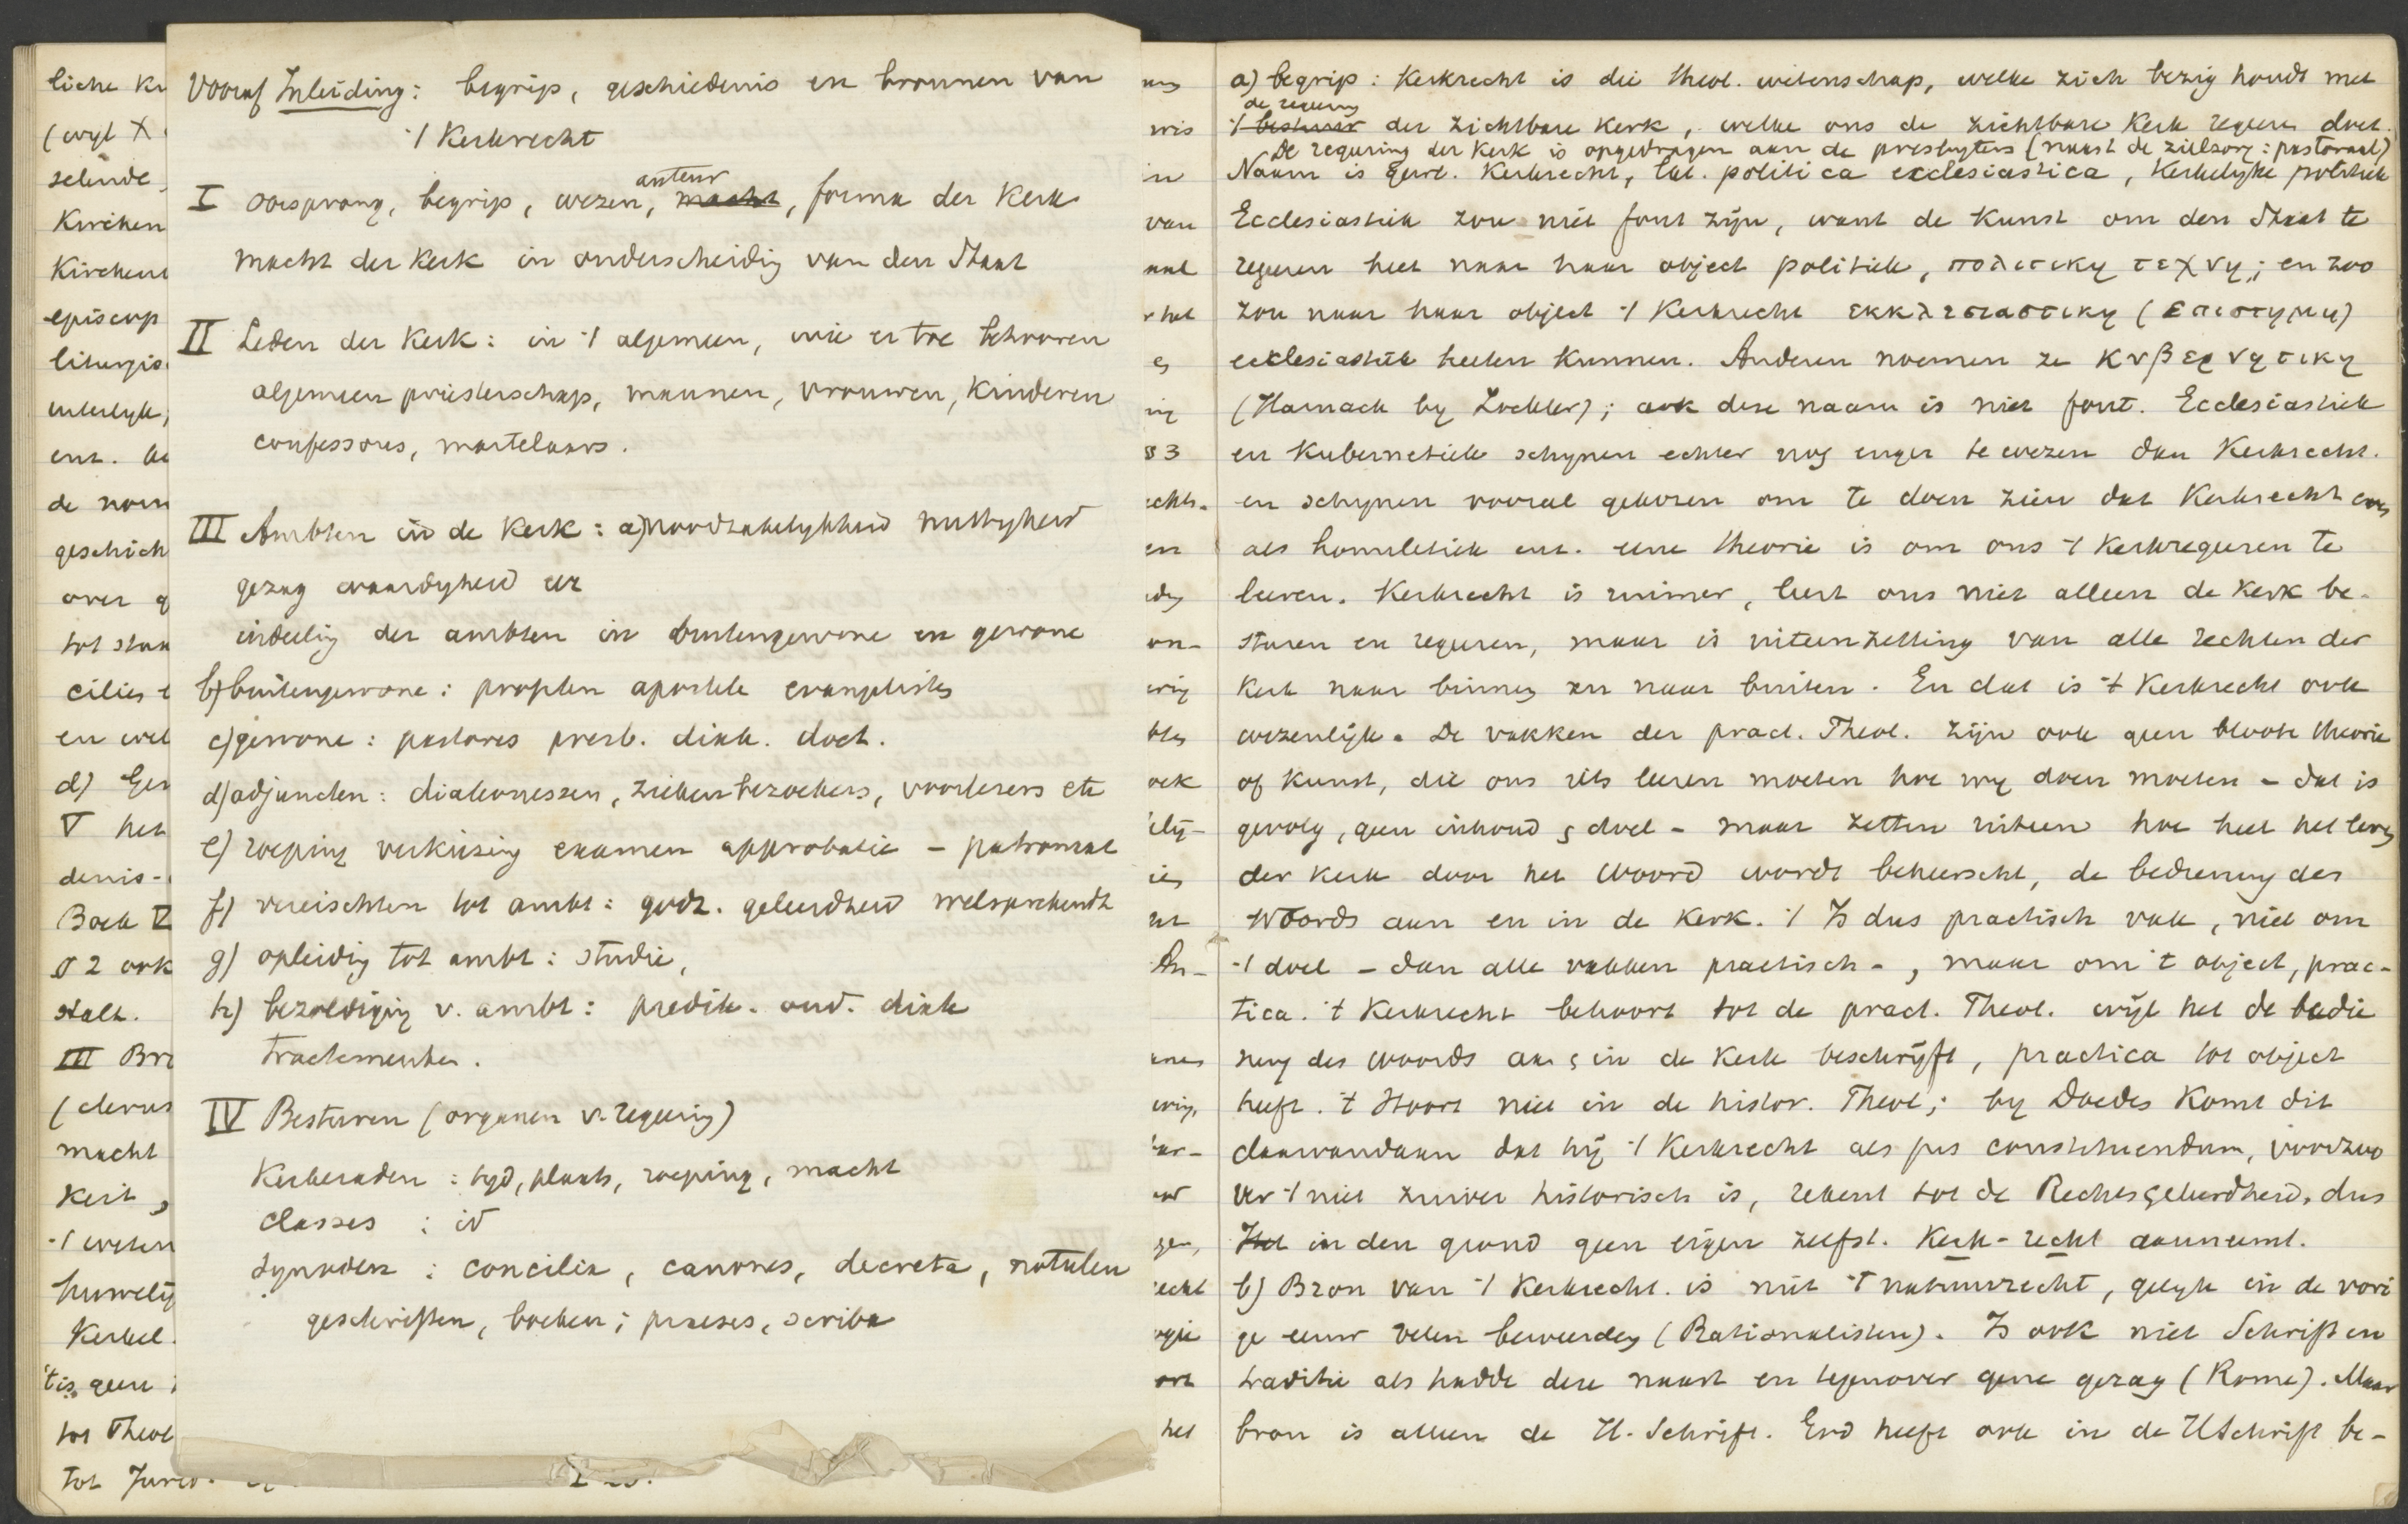 Vooraf Inleiding: begrip, geschiedenis en bronnen van
't Kerkrecht
I oorsprong, begrip, wezen, auteur macht, forma der Kerk
macht der Kerk in onderscheidig van den Staat
II Leden der Kerk: in 't algemeen, wie er toe behooren
algemeen priesterschap, mannen, vrouwen, kinderen
confessores, martelaars.
III Ambten in de Kerk: a) noodzakelykheid nuttigheid
gezag waardigheid eer
indeelig der ambten in buitengewone en gewone
b) buitengewone: profeten apostele evangelisten
c) gewone: pastores presb. diak. doct.
d) adjuncten: diakonessen, ziekenbezoekers, voorlezers etc
e) roeping verkiezing examen approbatie - patronaat
f) vereischten tot ambt: godz. geleerdheid welsprekendh
g) opleidig tot ambt: studie,
h) bezoldigig v. ambt: predik. oud. diak
tractementen.
IV Besturen (organen v. regeerig)
Kerkeraden: tyd, plaats, roeping, macht
classes : id
Synoden : concilia, canones, decreta, notulen
geschriften, boeken; praeses, scriba
liche Kr
(wyl X
selnde
Kirchen
Kirchenr
episcop
liturgis
uiterlyk,
ent.
de nom
geschich
over g
tot stan
cilies
en wel
d) Ger
V het
denis-
Boek V
§ 2 ook
stalt.
III Bro
(clerus
macht
Kerk,
't weten
huwelij
Kerkel.
't is geen
tot Theol
tot Jured.
a) begrip: Kerkrecht is die theol. wetenschap, welke zich bezig houdt met
de regeering
't bestuur der zichtbare Kerk, welke ons de zichtbare Kerk regeeren doet.
De regeering der Kerk is opgedragen aan de presbyters (naast de zielzorg: pastoraal)
Naam is Kerkrecht, Lat. politica ecclesiastica, Kerkelyke politiek
Ecclesiastiek zou niet fout zijn, want de kunst om den Staat te
regeeren heet naar haar object politiek, πολιτικη τεχνη; en zoo
zou naar haar object 't Kerkrecht εκκλησιαστικη (επιστημη)
ecclesiastiek heeten kunnen. Anderen noemen ze κυβερνητικη
(Harnack by Zöckler); ook deze naam is niet fout. Ecclesiastiek
en Kubernetiek schynen echter nog enger te wezen dan Kerkrecht.
en schynen vooral gekozen om te doen zien dat Kerkrecht even
als homiletiek ent. eene theorie is om ons 't Kerkregeeren te
leeren. Kerkrecht is ruimer, leert ons niet alleen de Kerk be-
sturen en regeeren, maar is uiteenzetting van alle rechten der
Kerk naar binnen en naar buiten. En dat is 't Kerkrecht ook
wezenlijk. De vakken der pract. Theol. zijn ook geen bloote theorie
of kunst, die ons iets leeren moeten hoe wy doen moeten - dat is
gevolg, geen inhoud & doel - maar zetten uiteen hoe heel het leven
der Kerk door het Woord wordt beheerscht, de bediening des
Woords aan en in de Kerk. 't Is dus practisch vak, niet om
't doel - dan alle vakken practisch -, maar om 't object, prac-
tica. 't Kerkrecht behoort tot de pract. Theol. wijl het de bedie
ning des Woords aan & in de Kerk beschrijft, practica tot object
heeft. 't Hoort niet in de histor. Theol; by Doedes komt dit
daarvandaan dat hij 't Kerkrecht als jus constituendum, voorzoo
ver 't niet zuiver historisch is, rekent tot de Rechtsgeleerdheid, dus
Het in den grond geen eigen zelfst. Kerk-recht aanneemt.
b) Bron van 't Kerkrecht. is niet 't natuurrecht, gelyk in de vori
ge eeuw velen beweerden (Rationalisten). Is ook niet Schrift en
traditie als hadde deze naast en tegenover gene gezag (Rome). Maar
bron is alleen de H. Schrift. God heeft ook in de H Schrift be-